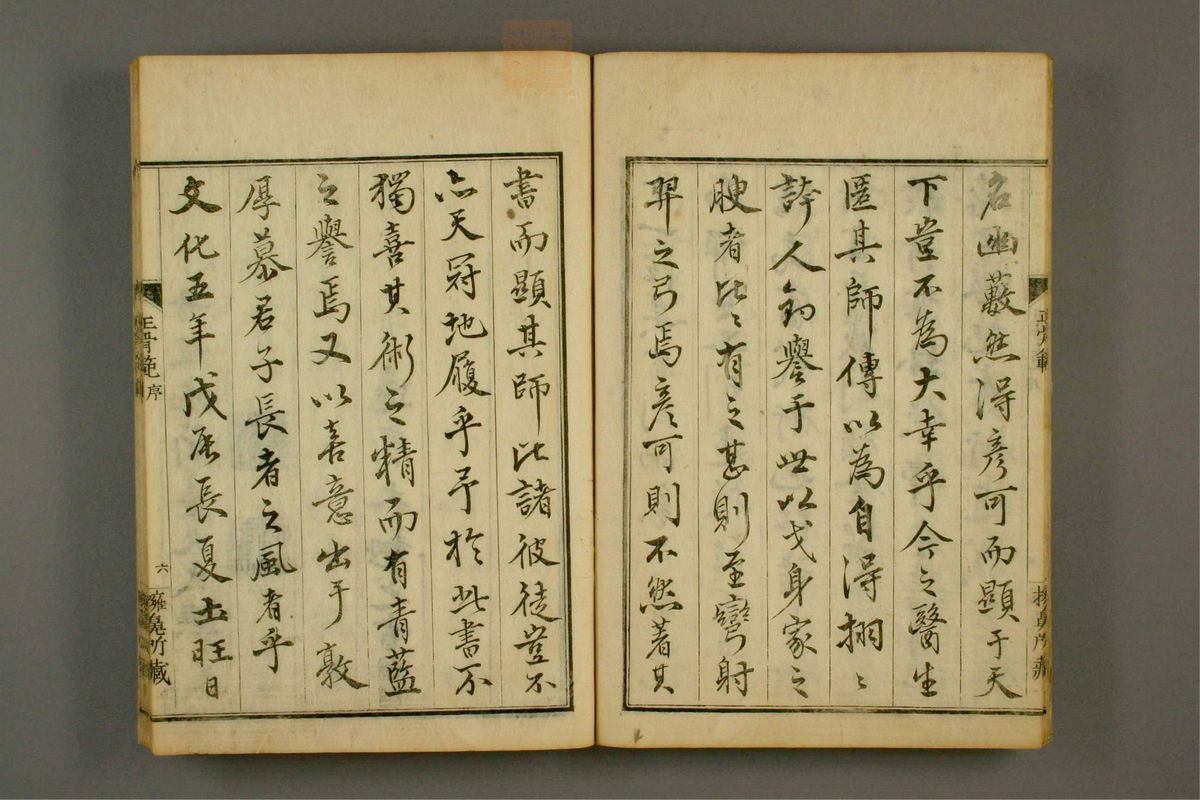 名幽藪然得彦可而顯于天
下豈不為大幸乎今之醫生
匿其師傳以為自得栩〻
誇人釣譽于世以戈身家之
腴者比〻有之甚則至彎射
羿之弓焉彦可則不然著其
書而顯其師比諸彼徒豈不
亦天冠地履乎予於此書不
獨喜其術之精而有青藍
之譽焉又以喜意出于敦
厚慕君子長者之風者乎
文化五年戊辰長夏土旺日
正骨範序
六
所藏